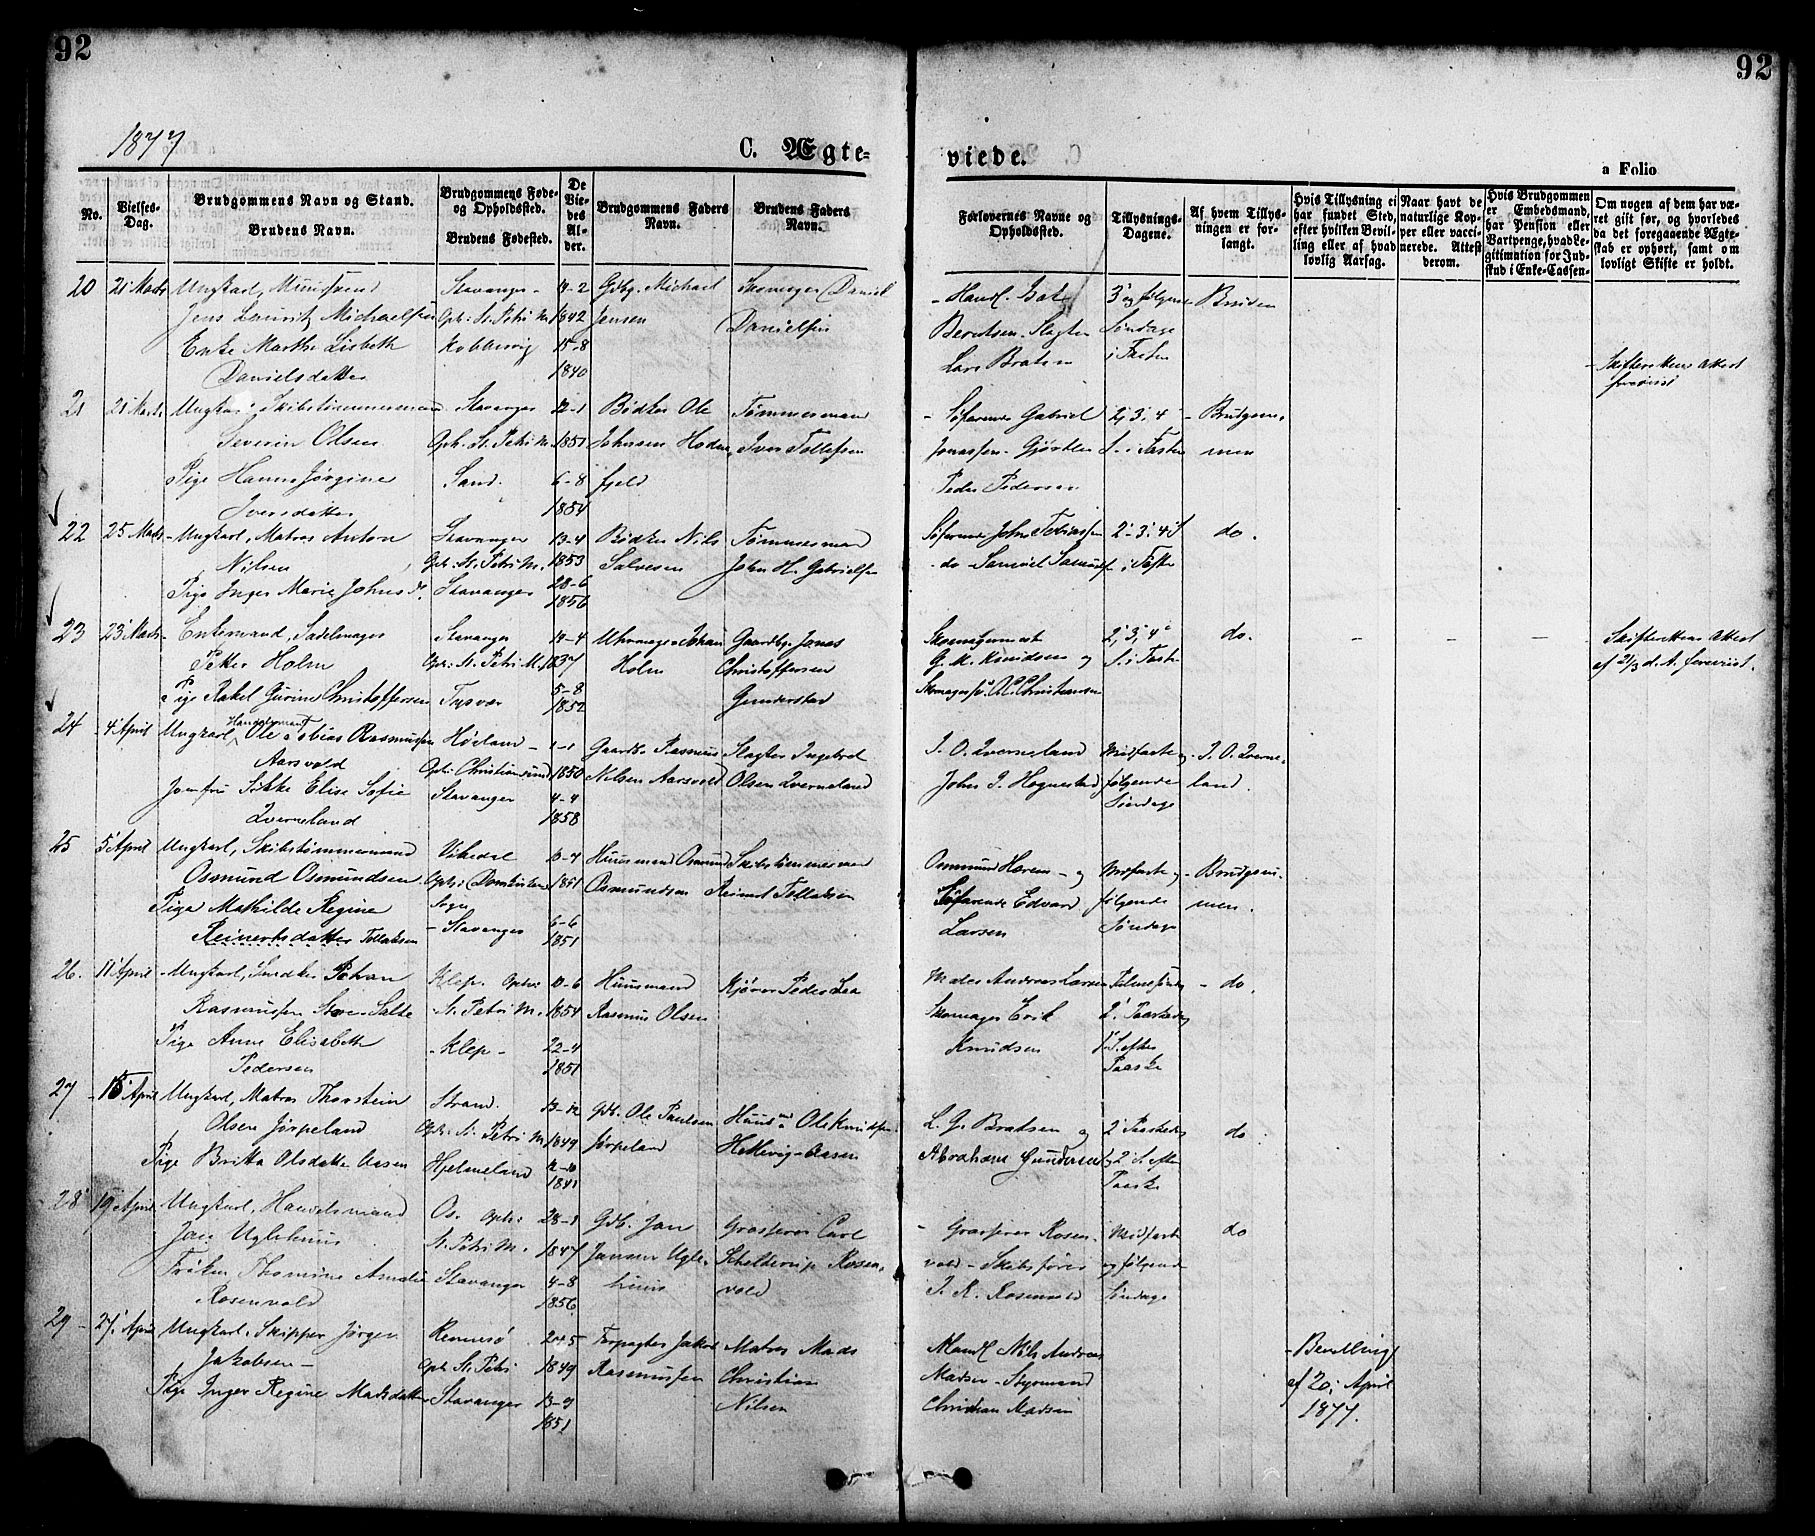 92
92
1877
C. Ægte-
viede.
a Folio
No.
Vielses-
Dag.
Brudgommens Navn og Stand.
Brudens Navn.
Brudgommens Føde-
og Opholdssted.
Brudens Fødested.
De
Vie-
des
Al-
der.
Brudgommens Faders
Navn.
Brudens Faders
Navn.
Forlovernes Navne og
Opholdssted.
Tillysnings-
Dagene.
Af hvem Tillys-
ningen er for-
langt.
Hvis Tillysning ei
har fundet Sted,
efter hvilken Bevil-
ling eller af hvad
lovlig Aarsag.
Naar havt de
naturlige Kop-
per eller vacci-
nerede. Attest
derom.
Hvis Brudgommen
er Embedsmand,
har Pension eller
Vartpenge, hvad Le-
gitimation for Ind-
skud i Enke-Cassen
Om nogen af dem har væ-
ret gift før, og hvorledes
da det foregaaende Ægte-
skab er ophørt, samt om
lovligt Skifte er holdt.
20 21 Marts Ungkarl, Stavanger 14-2 Gdbg. Michael Daniel 3 og følgende Bruden
Jens Lauritz Michaelsen Oph: St. Petri M. 1842 Jensen Danielsen Berntsen - Slagter Søndage
Enke Marthe Lisbeth 15-8 Lars Bratsen i Fasten
Danielsdatter 1840
21 21 Marts Ungkarl, Skibstømmermand Stavanger 12-1 Bødker Ole Tømmermand Søfarende Gabriel 2, 3, 4 Brudgom-
Severin Olsen Oph. St. Petri M. 1851 Johnsen Iver Tollefsen Jonassen S. i Fasten men
Pige Hanne Jørgine Sand. 6-8 fjeld Peder Pedersen
Iversdatter 1854
22 25 Marts Ungkarl, Matros Anton Stavanger 13-4 Bødker Nils Tømmermand Søfarende John Tobiassen 2-3-4 S do.
Nilsen Oph: St. Petri M. 1853 Salvesen John H. Gabrielsen do - Samuel i Faste
Pige Inger Marie Johns d. Stavanger 28-6
1856
23 23 Marts Enkemand, Sadelmager Stavanger 14-4 Uhrmager Johan Gaardbg. Jonas 2, 3, 4 do. Skifterettens Attest
Petter Holm Oph: St. Petri M. 1837 Holm Christoffersen G. M. Knudsen og S. i Faste af 21/3 d. A. foreviist.
Pige Rakel Gurine Christoffersen Tysvær 5-8 Gunderstad
1852
24 4 April Ungkarl Handelsmand Ole Tobias Rasmussen Høiland 1-1 Gaardb. Rasmus Slagter Ingebret T. O. Qverneland Midfaste og T. O. Qverne-
Aarsvold Oph: Christiansund 1850 Nilsen Aarsvold Olsen Qverneland John T. Hognestad følgende land.
Jomfru Sikke Elise Sofie Stavanger 4-4 Søndage
Qverneland 1858
25 5 April Ungkarl, Skibstømmermand Vikedal 13-4 Huusmand Osmund Skibstømmermand Osmund og Midfaste og Brudgom-
Osmund Osmundsen Oph: Domkirkens 1851 Osmundsen Reinert Tollaksen Søfarende Edvard følgende men.
Pige Mathilde Regine Sogn Larsen Søndage
Reinertsdatter Tollaksen Stavanger 6-6
1851
26. 11 April Ungkarl, Johan Klep. Oph: 10-6 Huusmand Peder Lea Andreas Larsen do
Rasmussen Salte St. Petri M. 1854 Rasmus Olsen Skomager Erik 2 Paaskedag
Pige Anne Elisabeth Klep 22-4 Knudsen 1 S. efter
Pedersen 1851 Paaske
27 15 April Ungkarl, Matros Thorstein Strand. 13-12 Gdb. Ole Paulsen Huusmd Ole Knudsen L. G. Bratsen og 2 Paaskedag do
Olsen Jørpeland Oph: St. Petri M. 1849 Jørpeland Hettevig-Aasen Abraham Gundersen og 2 S. efter
Pige Britta Olsdatter Aasen Hjelmeland 12-10 Paaske
1841
28 19 April Ungkarl, Handelsmand Os. Oph: 28-1 Gdb. Jan Carl Rosen- Midfaste do
Jan Uglehuus St. Petri M. 1847 Jansen Ugle- Schelderup Rosen- vold - Skibsfører og følgende
Frøken Thomine Amalie Stavanger 4-8 huus vold T. R. Rosenvold Søndage
Rosenvold 1856
29 27 April Ungkarl, Skipper Jørgen Rennesø 24-5 Forpagter Jakob Matros Mads Nils Andreas Bevilling
Jakobsen Oph: St. Petri 1849 Rasmussen Christian Madsen - Styrmand af 20 April
Pige Inger Regine Madsdatter Stavanger 13-9 Nilsen Christian Madsen 1877.
1851